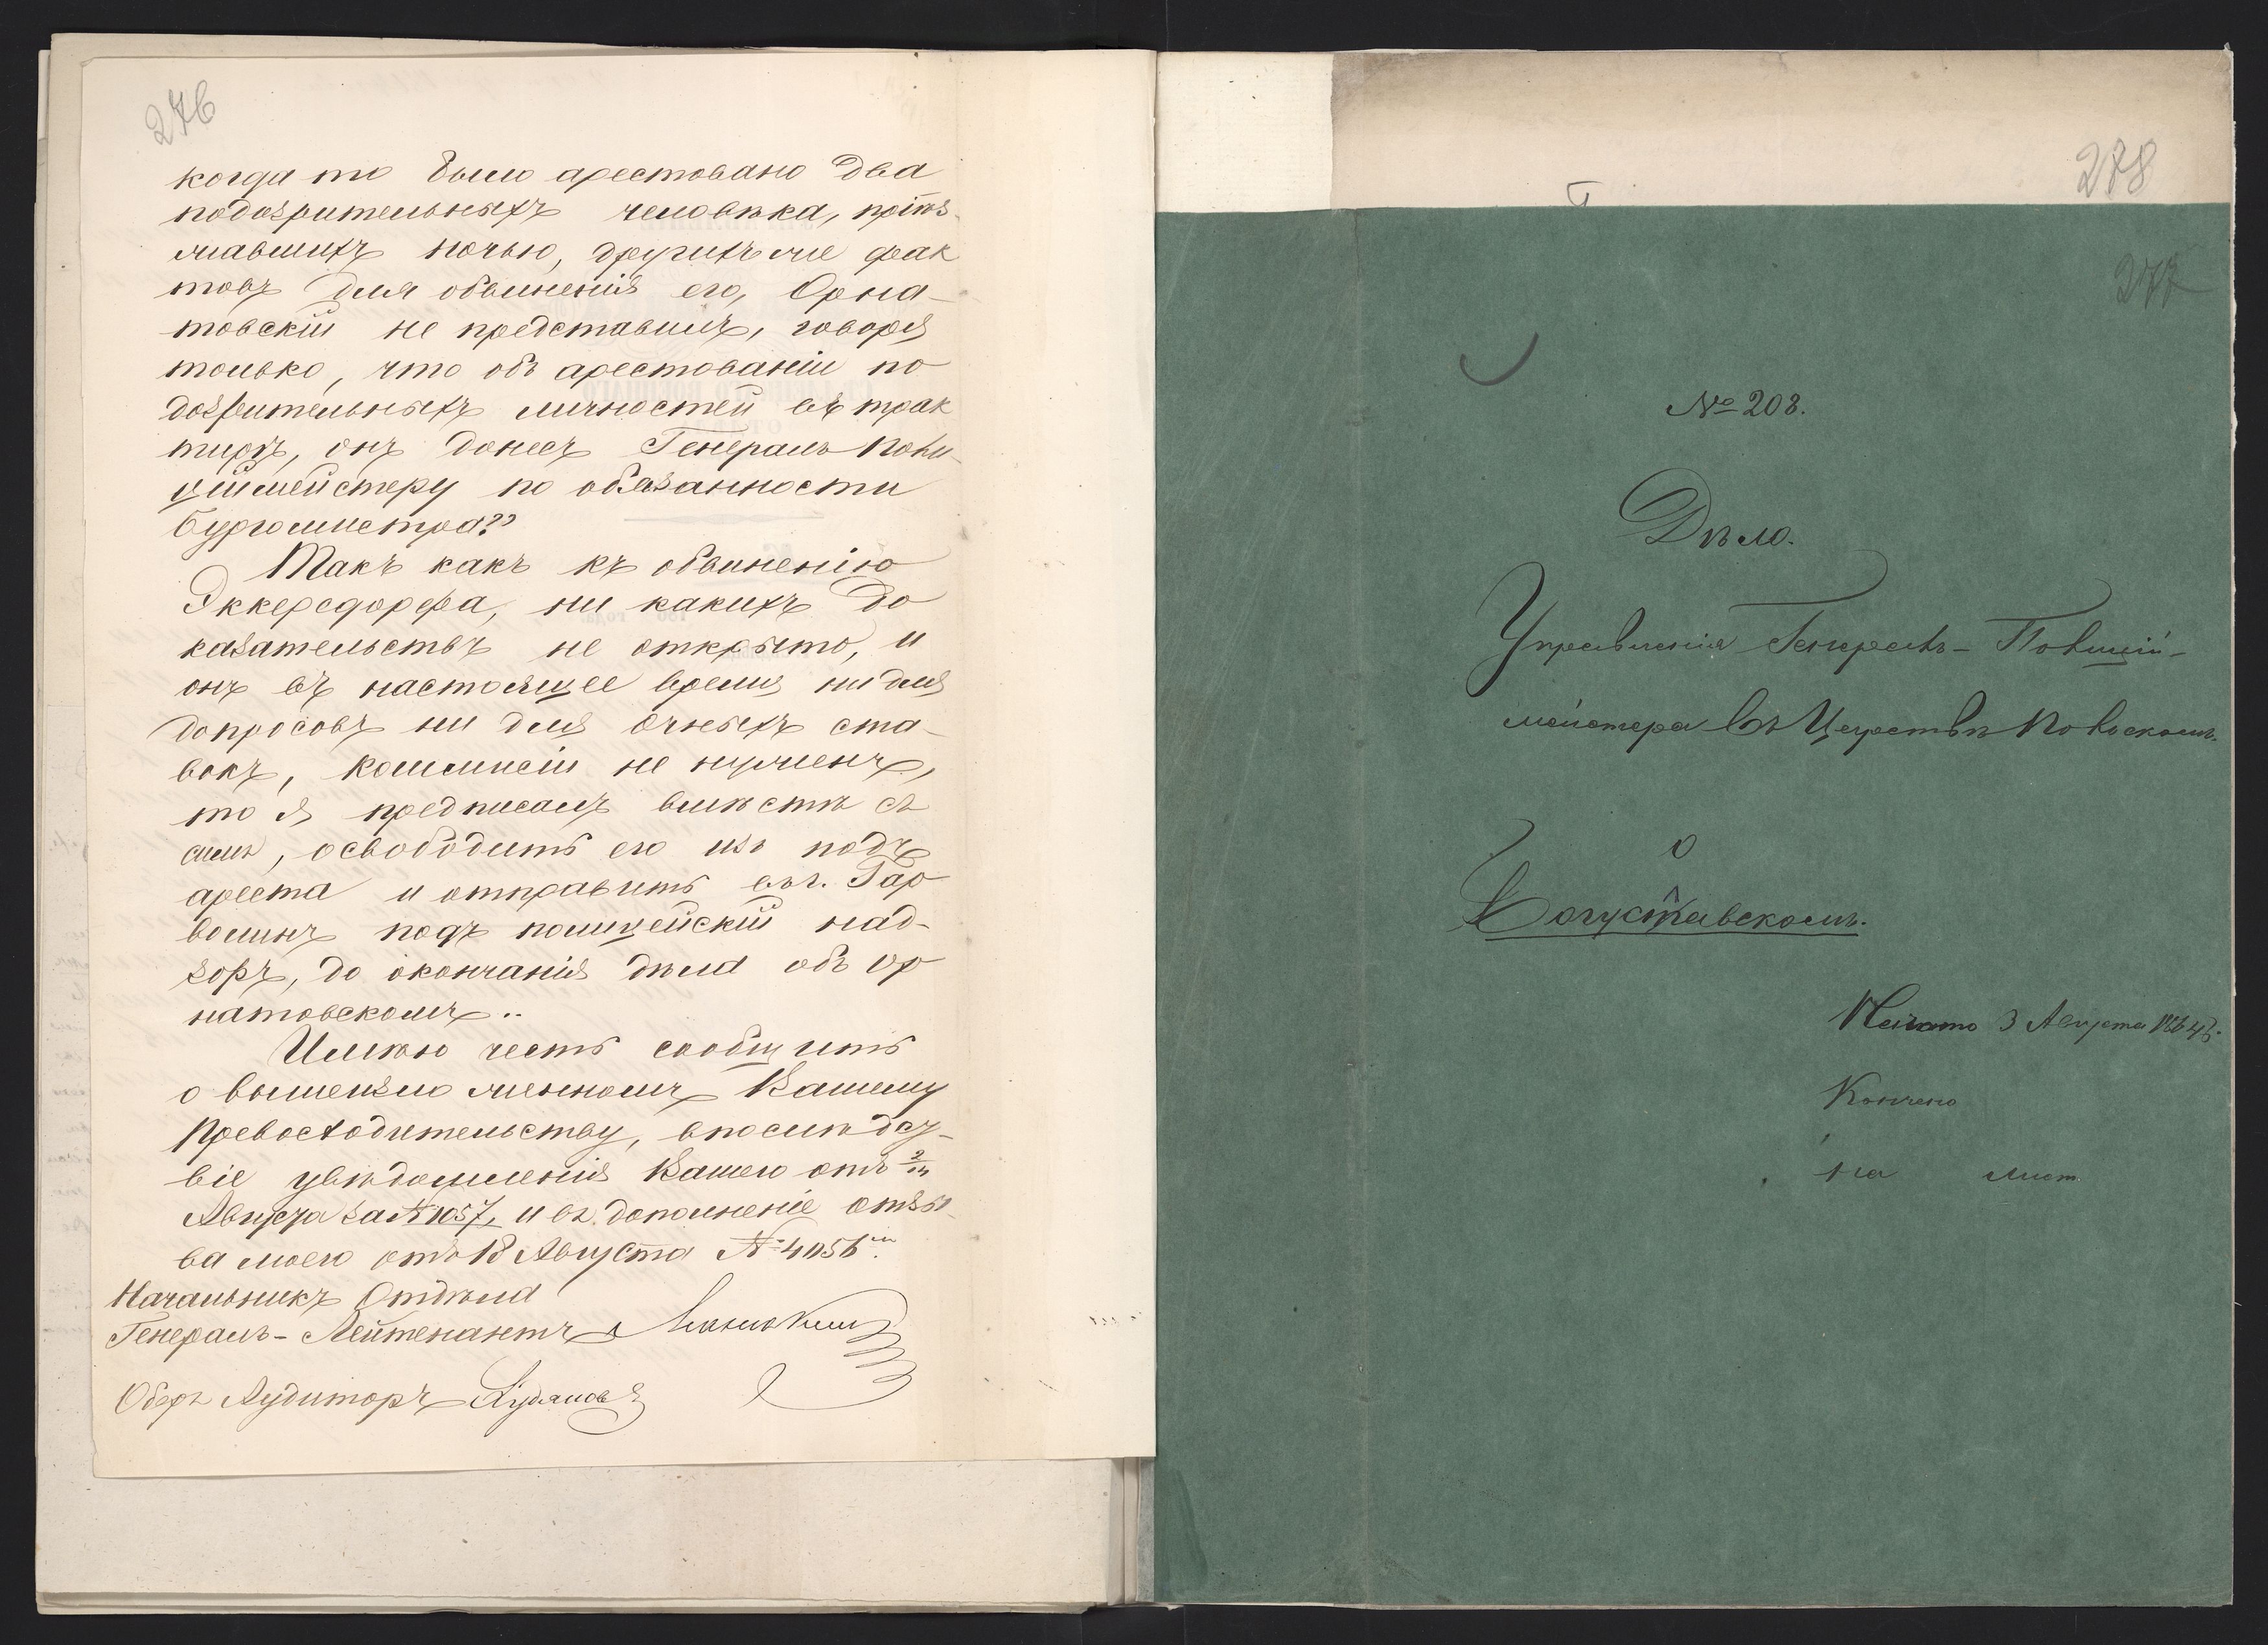 276
когда то было арестовано два
подозрительныхъ человѣка, пріѣз-
жавшихъ ночью, другихъ же фак
товъ для обвиненія его, Орна-
товскій не представилъ, говоря
только, что объ арестованіи по
дозрительныхъ личностей въ трак
тирѣ, онъ донесъ Генералъ Поли-
ціймейстеру по обязанности
бургомистра"
Такъ какъ къ обвиненію
Эккерсдорфа, ни какихъ до
казательствъ не открыто, и
онъ въ настоящее время ни для
допросовъ ни для очныхъ ста-
вокъ, коммисіи не нуженъ,
то я предписалъ вмѣстѣ съ
симъ, освободить его изъ подъ
ареста и отправить въ г. Гар
волинъ подъ полицейскій над-
зоръ, до окончанія дѣла объ Ор
натовскомъ..
Имѣю честь сообщить
о вышеизложенномъ Вашему
Превосходительству, въ послѣдст-
віе увѣдомленія Вашего отъ 2/14
Августа за № 1057, и въ дополненіе отзы-
ва моего отъ 18 Августа № 4056
Начальникъ Отдѣла
Генералъ-Лейтенантъ
Оберъ Аудиторъ
278
277
№ 208.
Дѣло.
Управленія Генералъ-Полицій-
мейстера въ Царствѣ Польскомъ.
О
Богуславскомъ.
Начато 3 Августа 1864 г.
Кончено
на лист.